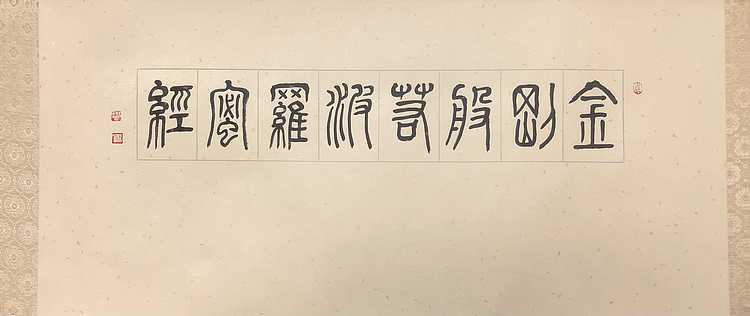 金剛般若波羅蜜經